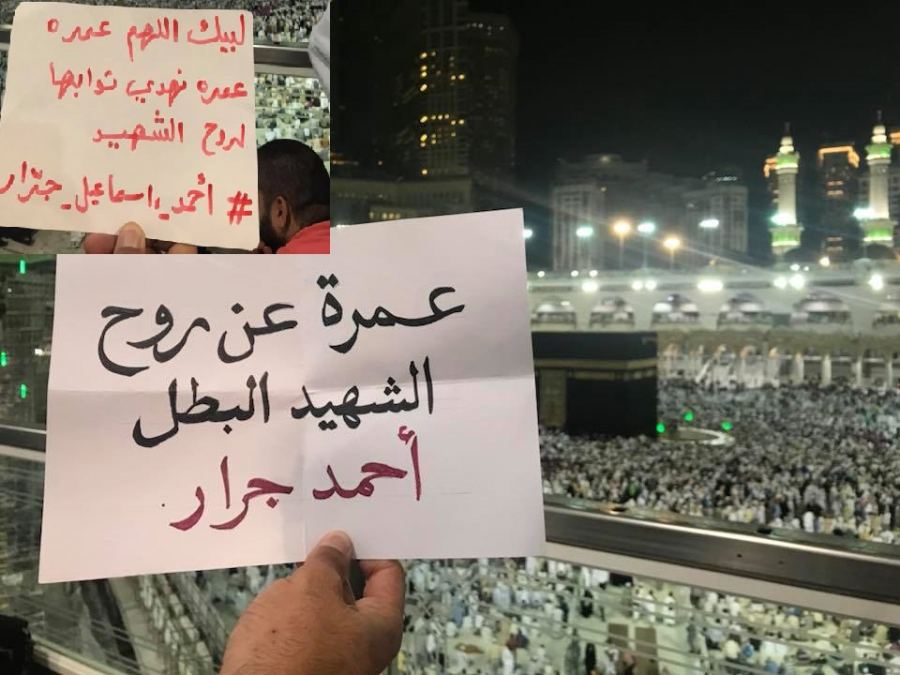 لبيك اللهم عمره
عمره نهدي ثوابها
لروح الشهيد
# أحمد_اسماعيل_جرّار
عمرة عن روح
الشهيد البطل
أحمد جرار